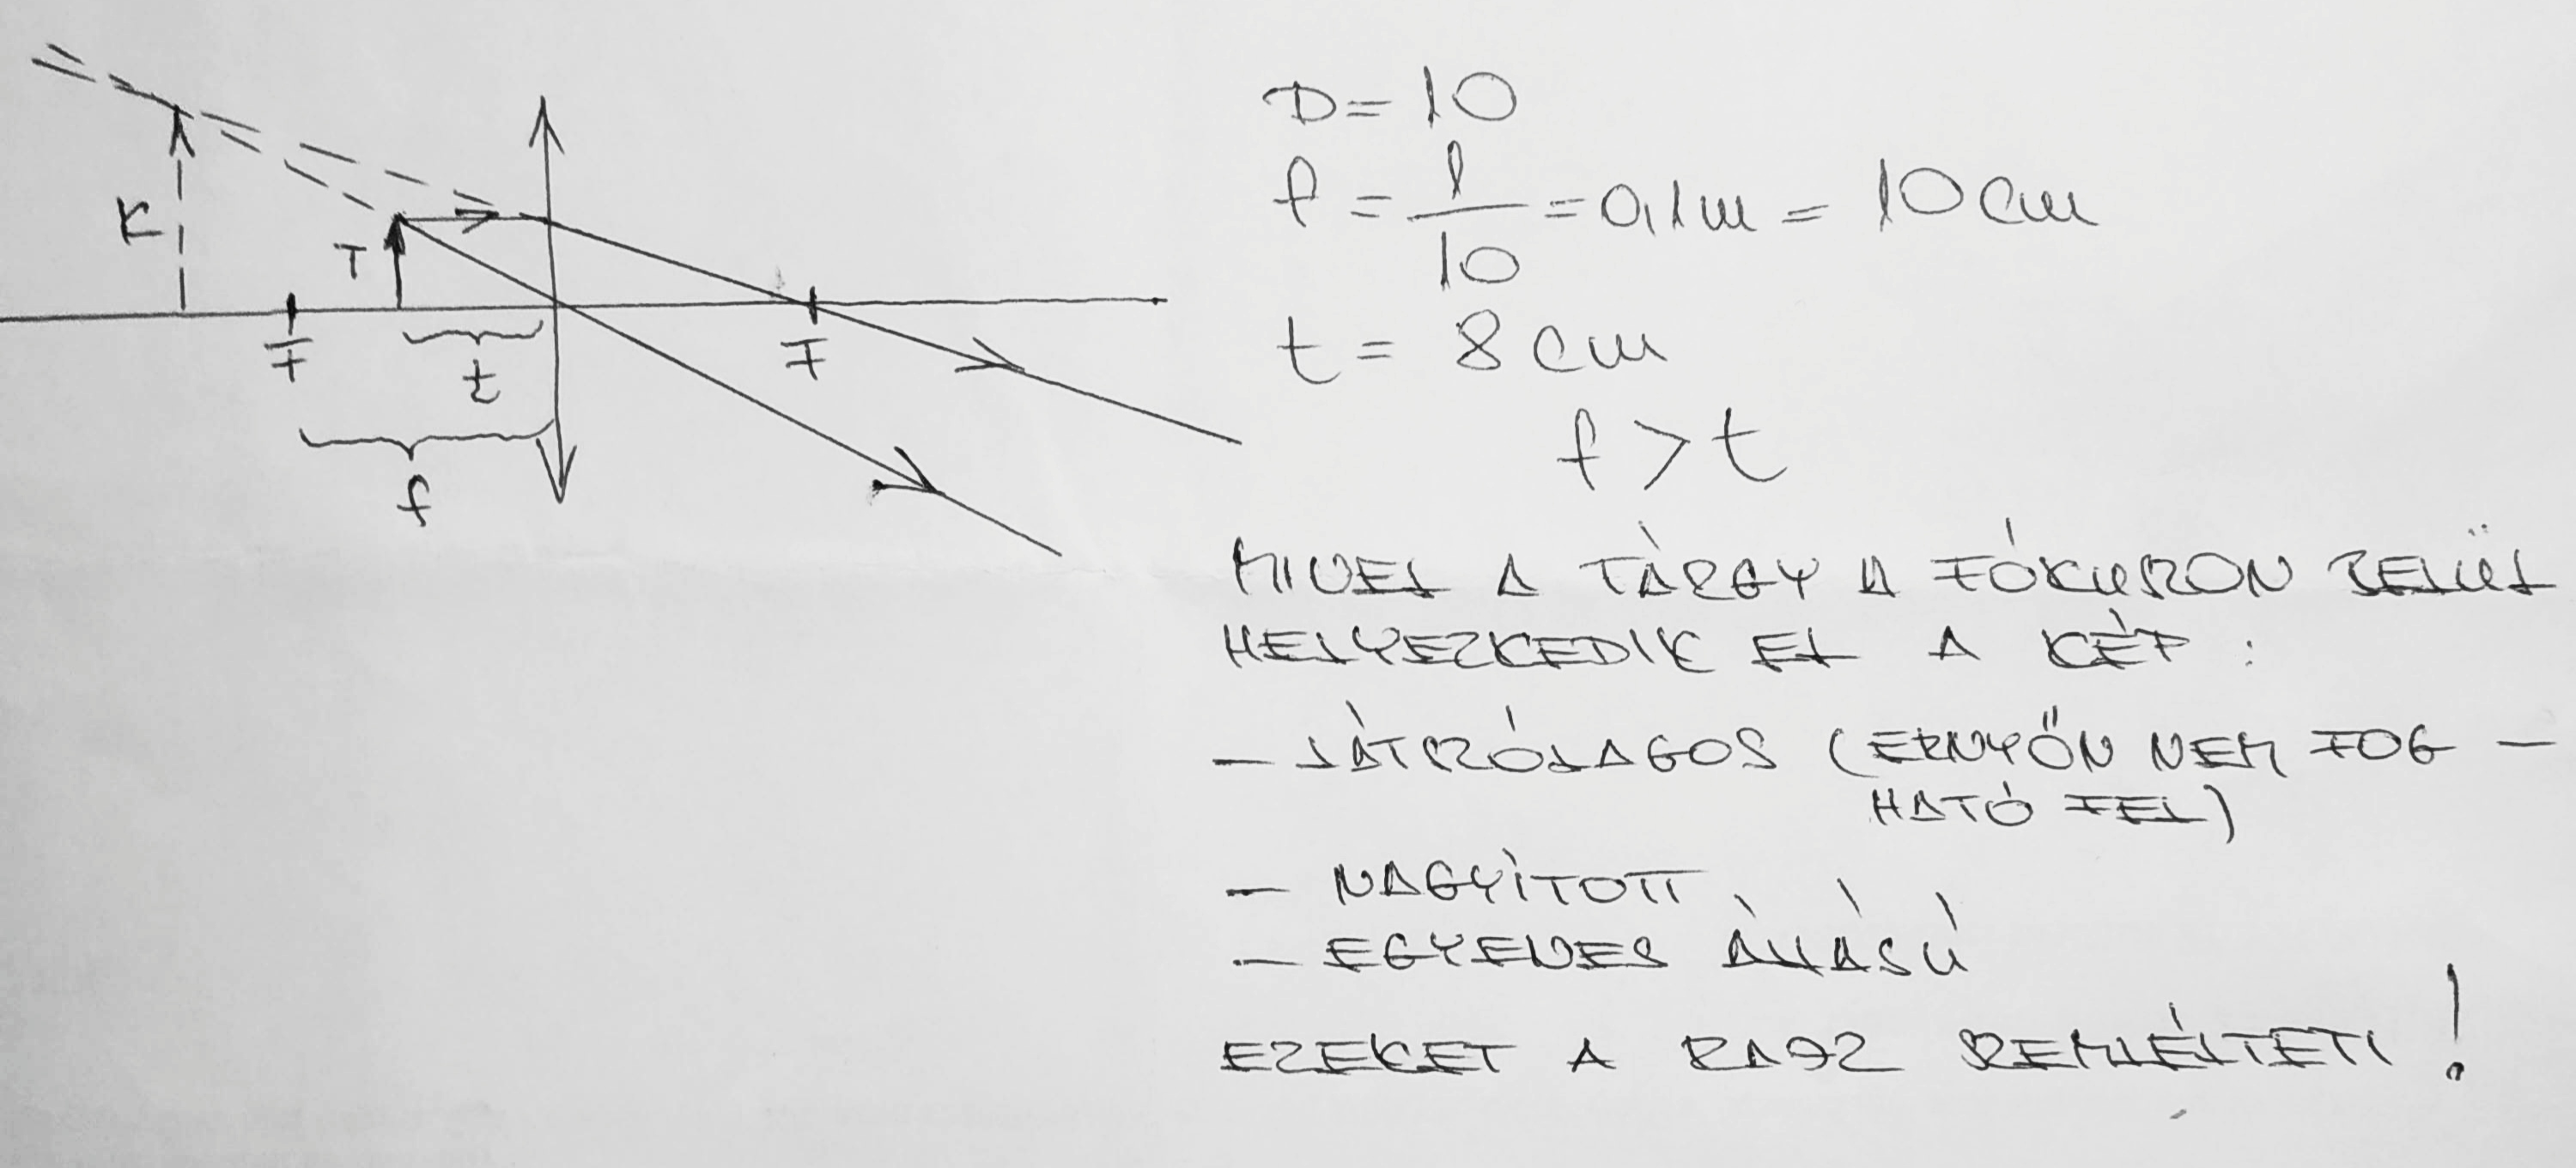 K
T
F
t
f
F
D = 10
f = 1/10 = 0,1m = 10 cm
t = 8 cm
f > t
MIVEL A TÁRGY A FÓKUSZON BELÜL
HELYEZKEDIK EL A KÉP :
- LÁTSZÓLAGOS (ERNYŐN NEM FOG -
HATÓ FEL)
- NAGYÍTOTT
- EGYENES ÁLLÁSÚ
EZEKET A RAJZ SZEMLÉLTETI !